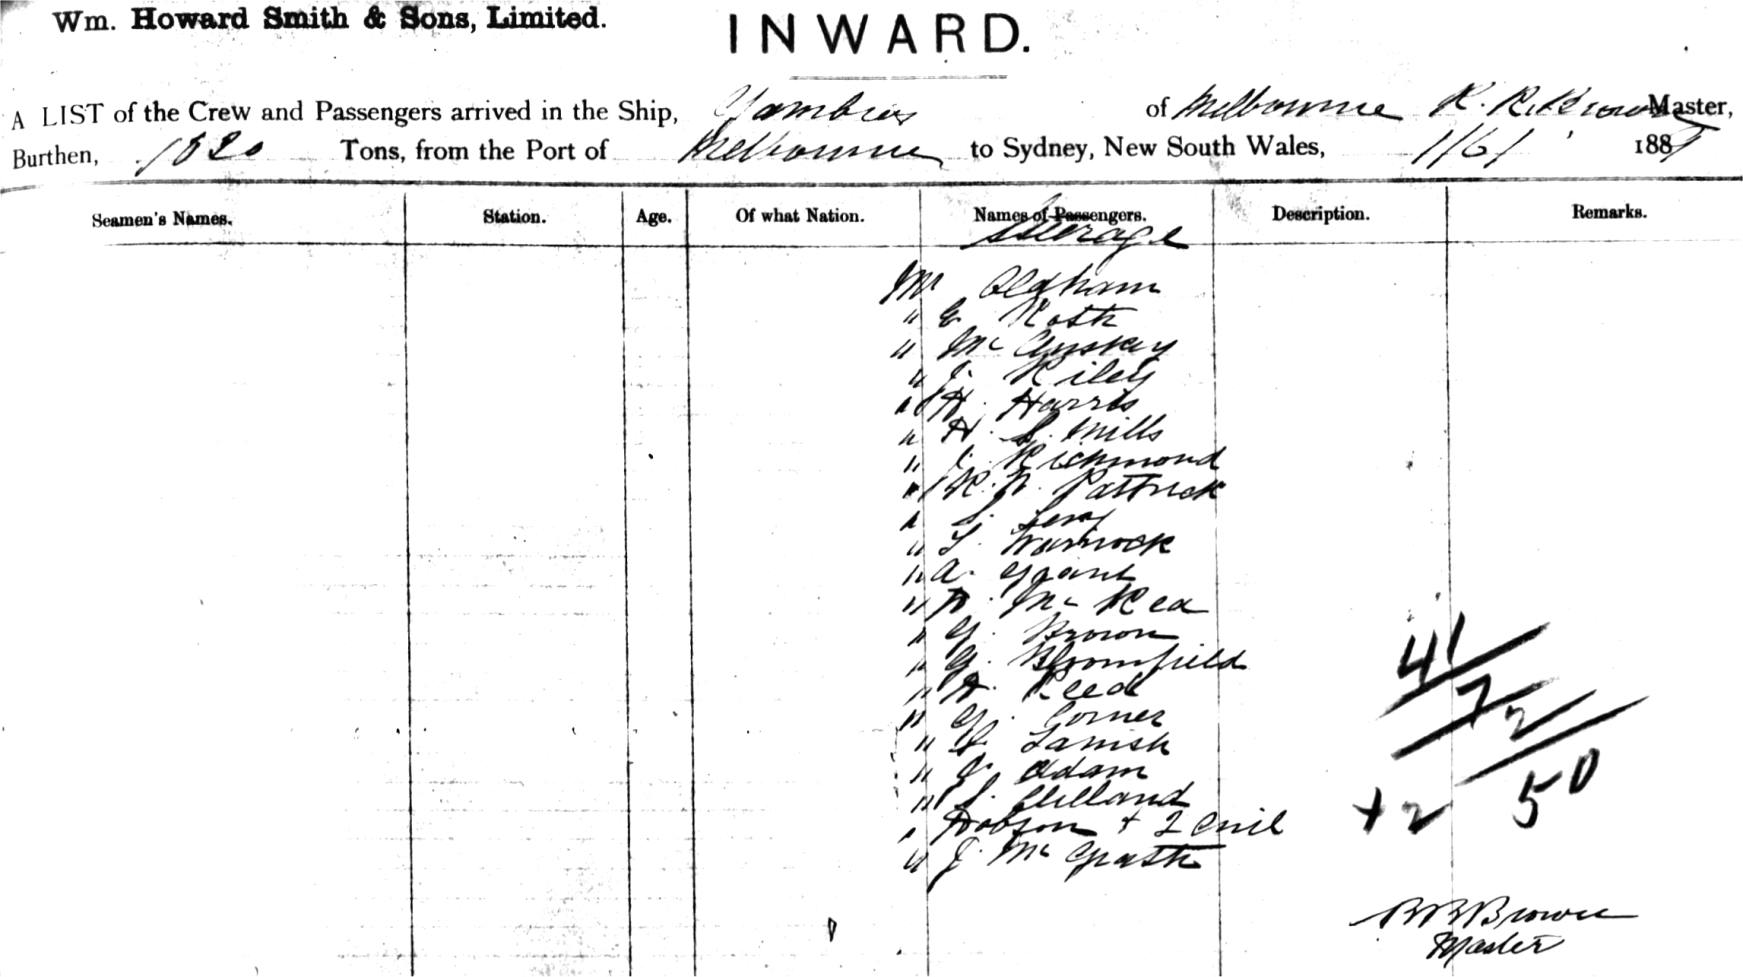 Wm. Howard Smith & Sons, Limited.
INWARD.
A LIST of the Crew and Passengers arrived in the Ship, of Melbourne Brown Master,
Burthen, 1820 Tons, from the Port of Melbourne to Sydney, New South Wales, 1/6/ 188
Seamen's Names. Station. Age. Of what Nation. Names of Passengers. Description. Remarks.
Steerage
Mr Oldham
" E Roth
" Mc
" J. Riley
" H. Harris
" H. S. Mills
" J. Richmond
" Pattrick
" S. Levy
" Warnock
" A. Grant
" Mc Rea
" G. Brown
" G. Bloomfield
" Reed
" G. Corner
" Tanish
" J. Adam
" S. Clelland
" Hobson + 2
" J. Mc Grath
41
7
2
+2 50
Brown
Master